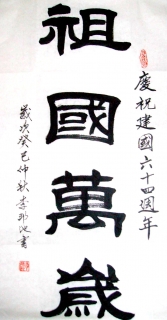 慶祝建國六十四週年
祖國萬歲
歲次癸巳仲秋李邦池書